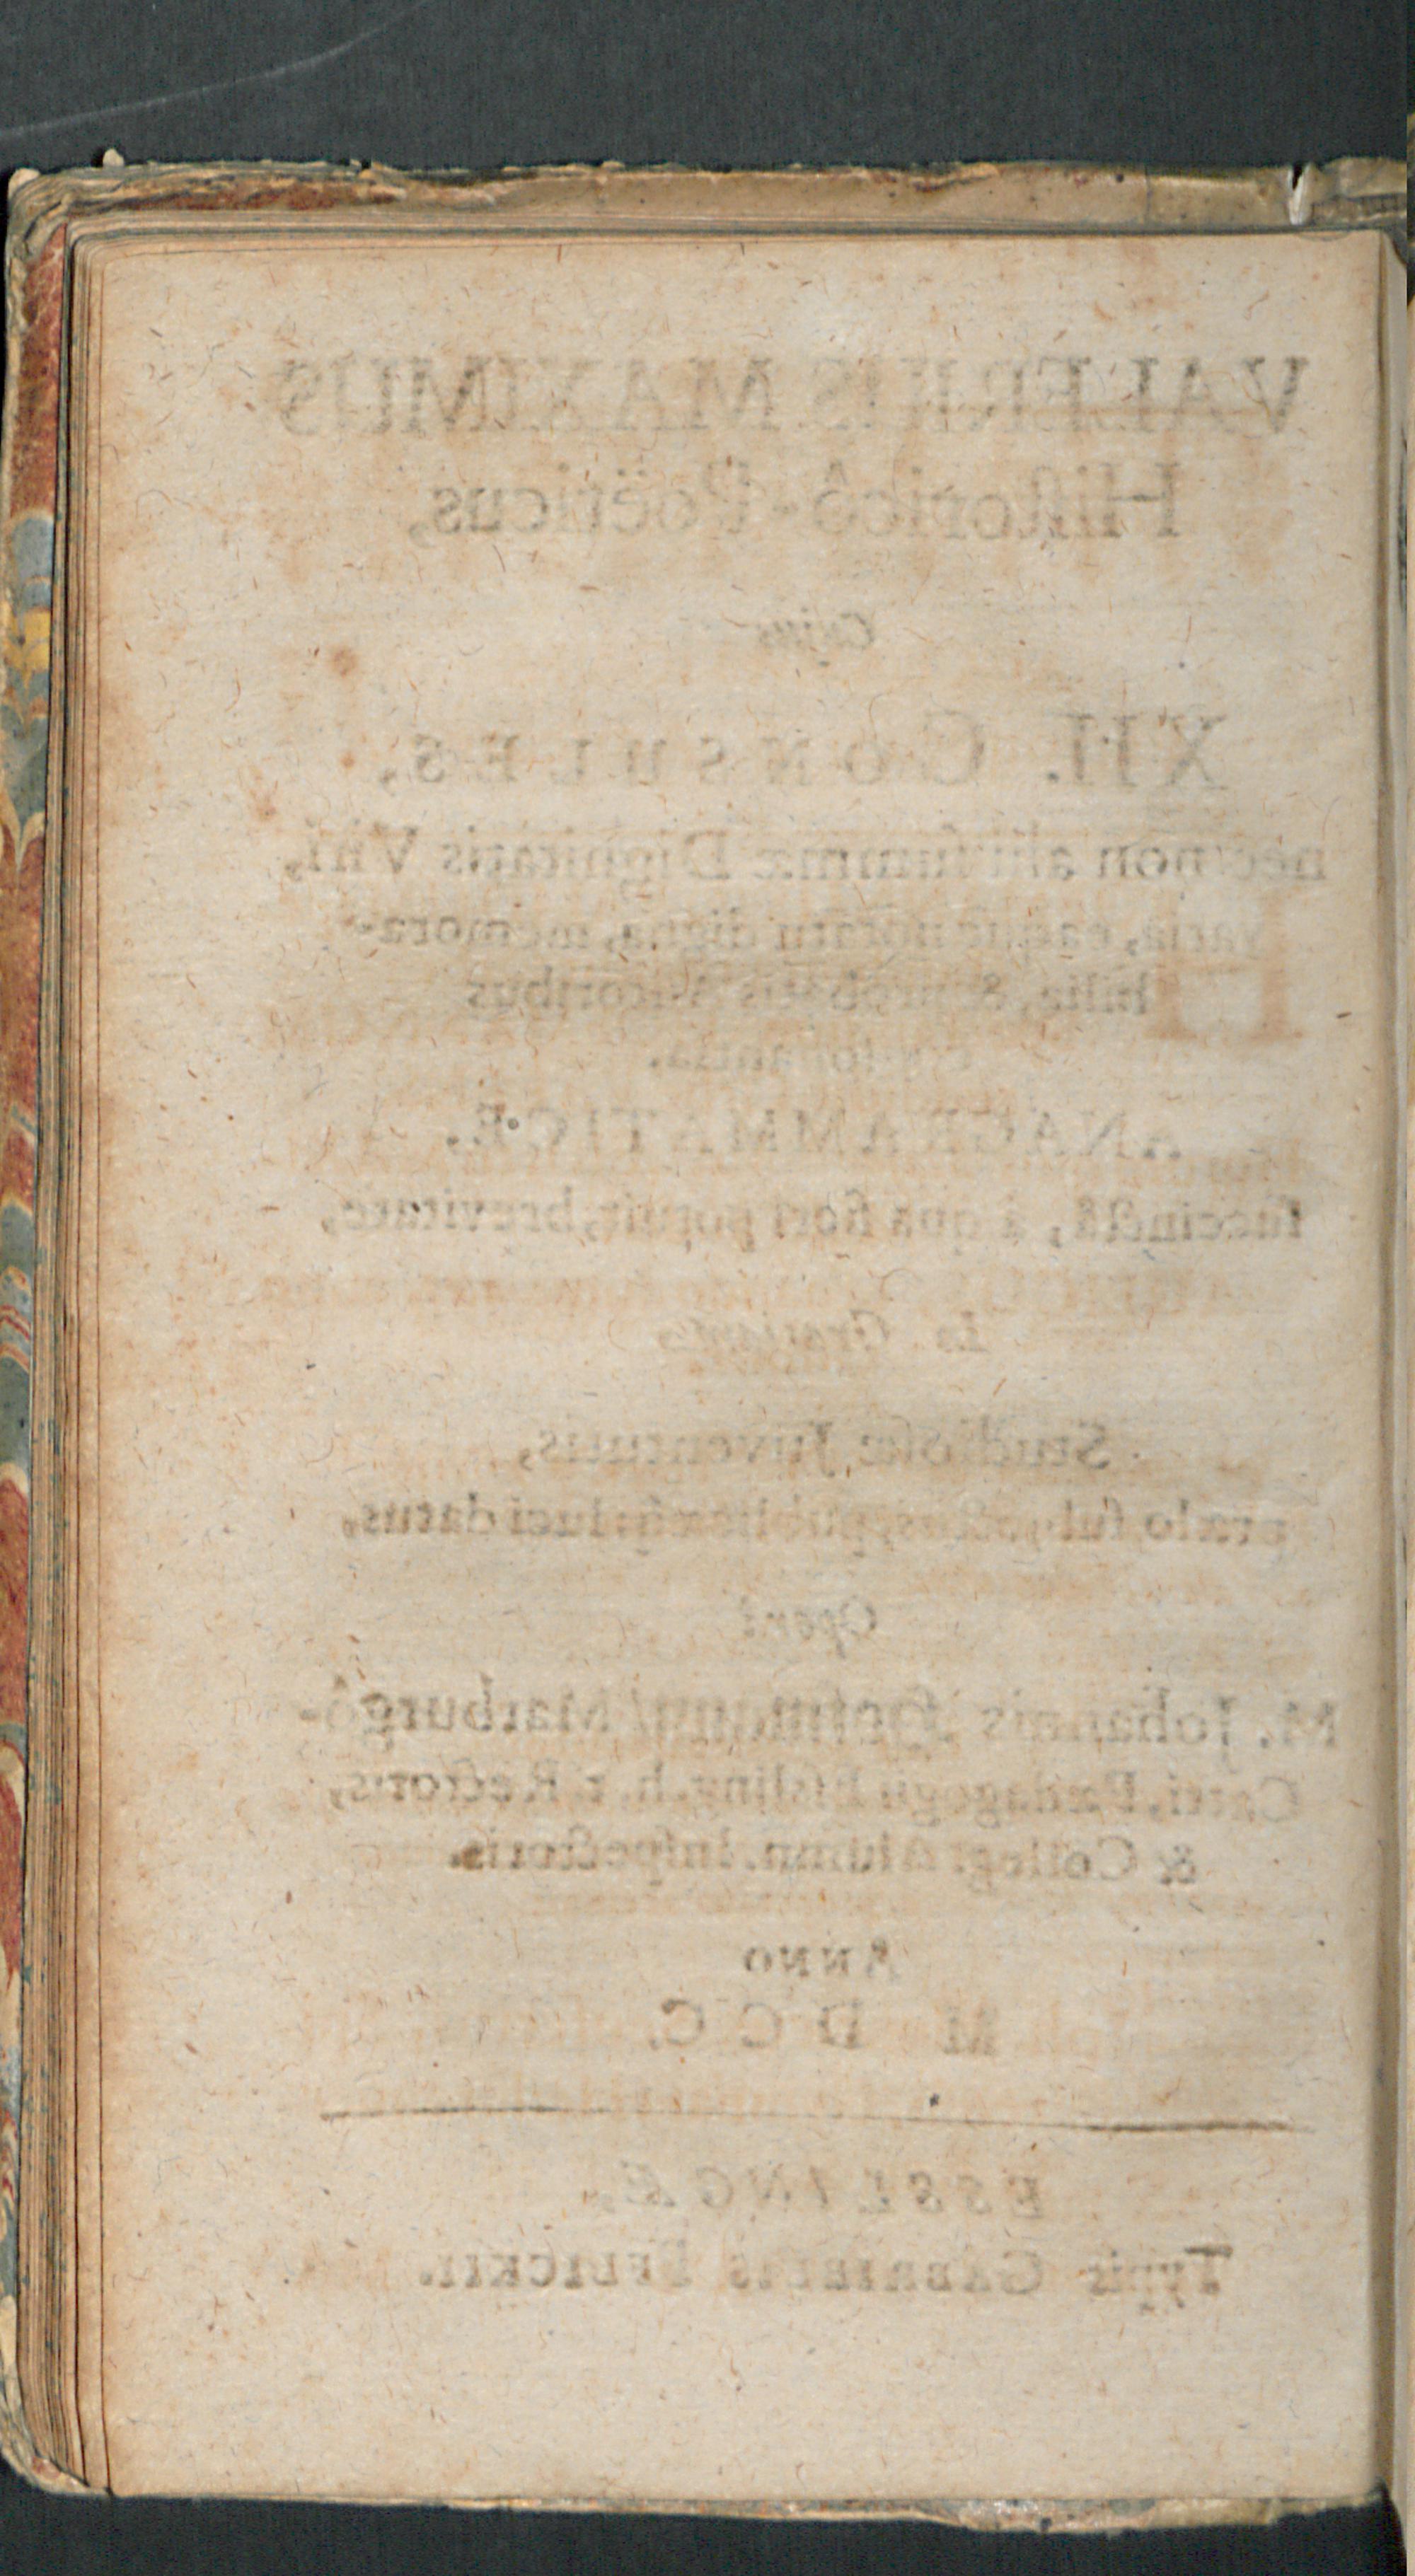 VALERIUS MAXIMUS
Hiſtoricô-Poëticus,
Cujus
XII. CONSULES,
nec non alii ſummæ Dignitatis Viri,
varia, eaque notatu digna, memora-
bilia, & probatis Autoribus
ANAGRAMMATICE,
ſuccinctâ, à qua fieri potuit, brevitate,
In Gratiam
Studioſæ Juventutis,
prælo ſubjectus, publicæq; luci datus,
Operâ
M. Johannis Marburgô-
Catti, Pædagogii Eſsling. h.t. Rectoris,
& Colleg. Alumn. Inſpectoris.
ANNO
M DCC.
ESSLINGÆ,
Typis GABRIELIS